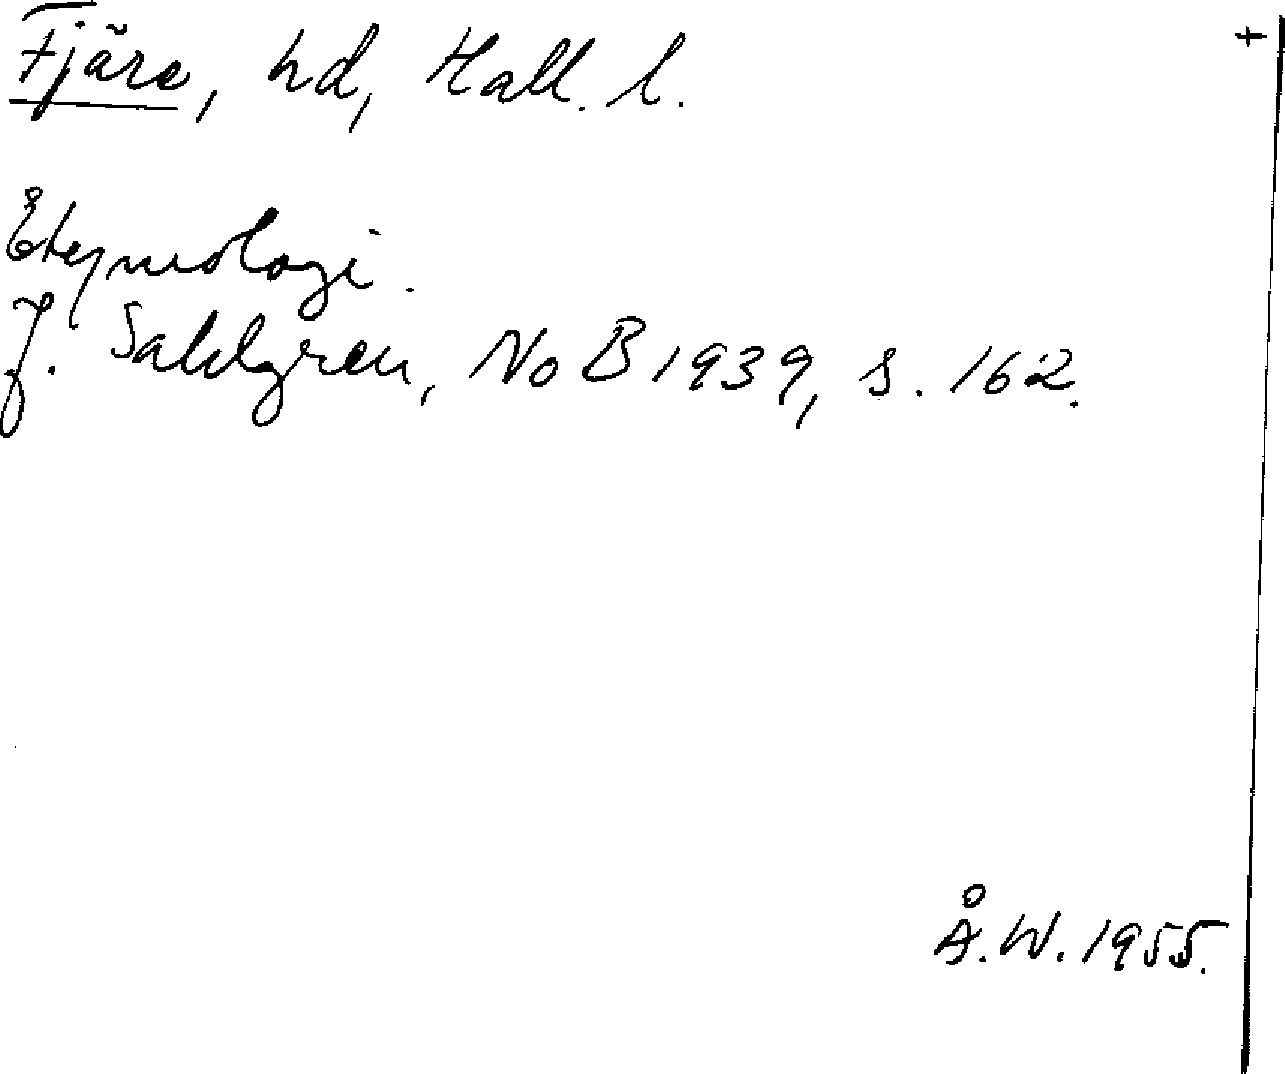 Fjäre, hd, Hall. l. +
Etymologi.
J. Sahlgren, NoB 1939, s. 162.
Å.W. 1955.